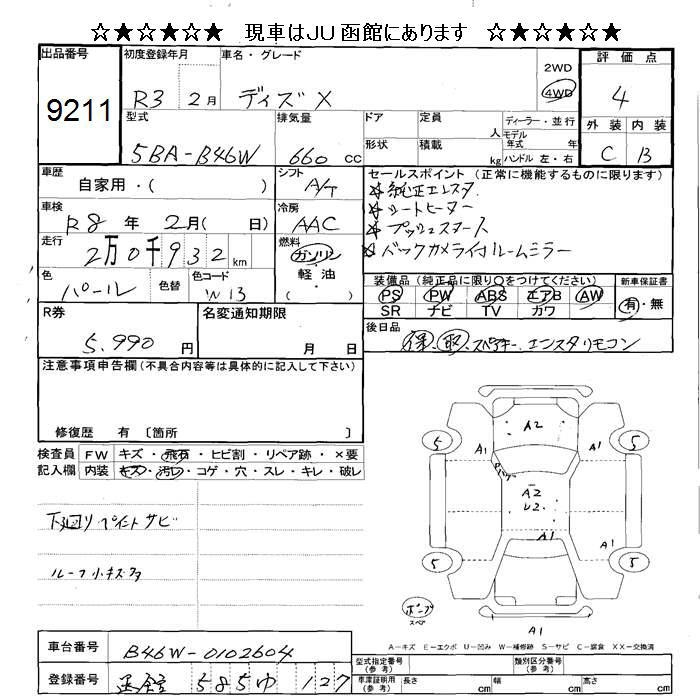 ☆★☆★☆ 現車はJU函館にあります ☆★☆★☆
出品番号 9211
初度登録年月 R3 2月
車名・グレード ディズ X
2WD 4WD
評価点 4
外装 内装
C B
型式 5BA-B46W
排気量 660 cc
ドア 定員 人
形状 積載 kg
ディーラー・並行
モデル年式 年
ハンドル 左・右
車歴 自家用・( )
シフト A/T
セールスポイント (正常に機能するものに限ります)
☆純正エンスタ
☆シートヒーター
☆プッシュスタート
☆バックカメラ付ルームミラー
車検 R8 年 2月( 日)
冷房 AAC
走行 2万0千932 km
燃料 ガソリン・軽油・( )
色 パール 色替 色コード W13
装備品 (純正品に限り○をつけてください)
PS PW ABS エアB AW
SR ナビ TV カワ
新車保証書 有・無
R券 5.990 円
名変通知期限 月 日
後日品 保、取、スペアキー、エンスタリモコン
注意事項申告欄 (不具合内容等は具体的に記入して下さい)
修復歴 有 〔箇所 〕
検査員記入欄
FW キズ・飛石・ヒビ割・リペア跡・×要
内装 キズ・汚レ・コゲ・穴・スレ・キレ・破レ
下廻り ペイント サビ
ルーフ小キズ多
A2
5 A1 5
A2
U2
A1 A1
5 5
ポンプ
スペア
A1
A-キズ E-エクボ U-凹み W-補修跡 S-サビ C-腐食 XX-交換済
車台番号 B46W-0102604
登録番号 函館 585 ゆ 127
型式指定番号(参考) 類別区分番号(参考)
車庫証明用(参考) 長さ cm 幅 cm 高さ cm